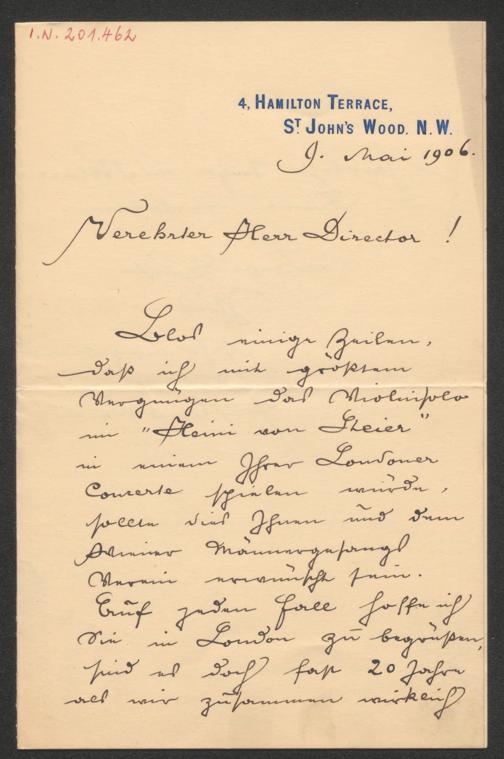 I.N. 201.462
4, HAMILTON TERRACE,
ST JOHN'S WOOD. N.W.
9. Mai 1906.
Verehrter Herr Director!
Blos einige Zeilen,
daß ich mit größtem
Vergnügen das Violinsolo
im "Heini von Steier"
in einem Ihrer Londoner
Concerte spielen würde,
sollte dies Ihnen und dem
Wiener Männergesangs
Verein erwünscht sein.
Auf jeden Fall hoffe ich
Sie in London zu begrüßen,
sind es doch fast 20 Jahre
als wir zusammen wirklich